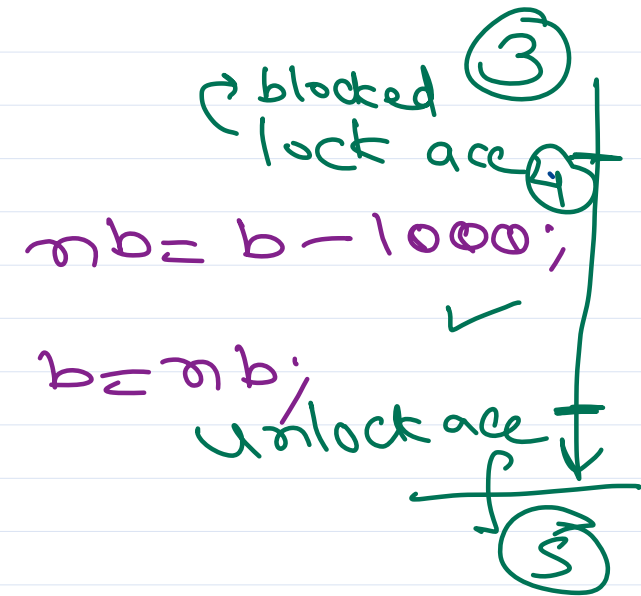 3
blocked
lock acc 4
nb = b - 1000;
b = nb;
unlock acc
5